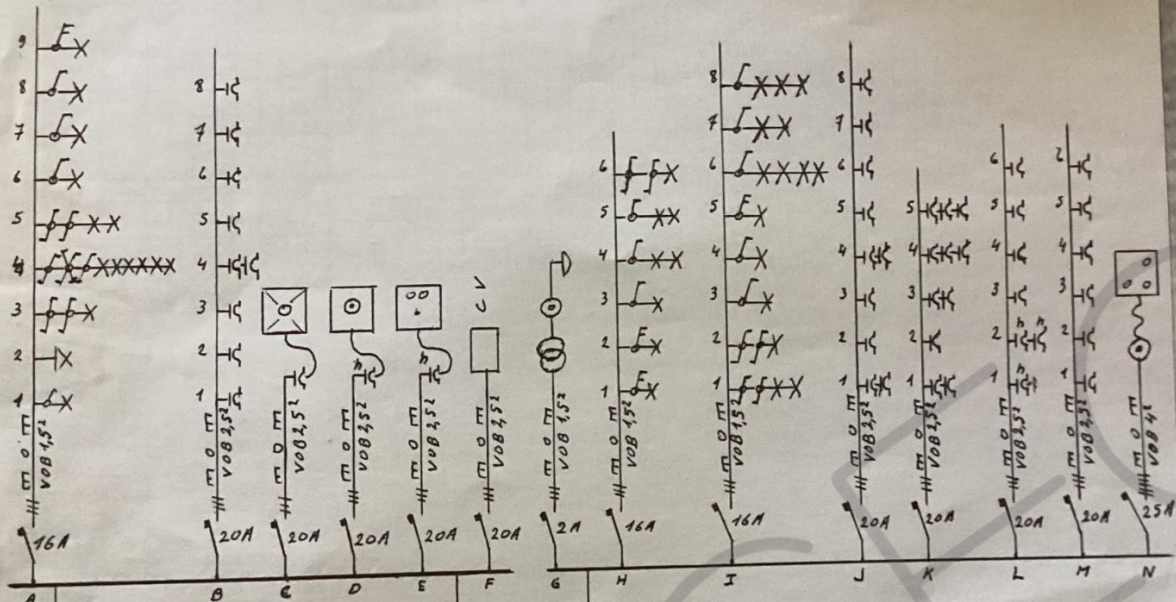 9
8
7
6
5
4
3
2
1
E O E VOB 1,5²
16A
A
8
7
6
5
4
3
2
1
E O E VOB 2,5²
20A
B
E O E VOB 2,5²
20A
C
4
E O E VOB 2,5²
20A
D
4
E O E VOB 2,5²
20A
E
CV
E O E VOB 2,5²
20A
F
E O E VOB 1,5²
2A
G
6
5
4
3
2
1
E O E VOB 1,5²
16A
H
8
7
6
5
4
3
2
1
E O E VOB 1,5²
16A
I
8
7
6
5
4
3
2
1
E O E VOB 2,5²
20A
J
5
4
3
2
1
E O E VOB 2,5²
20A
K
6
5
4
3
2 4 4
1 4
E O E VOB 2,5²
20A
L
5
4
3
2
1
E O E VOB 2,5²
20A
M
E O E VOB 4²
25A
N